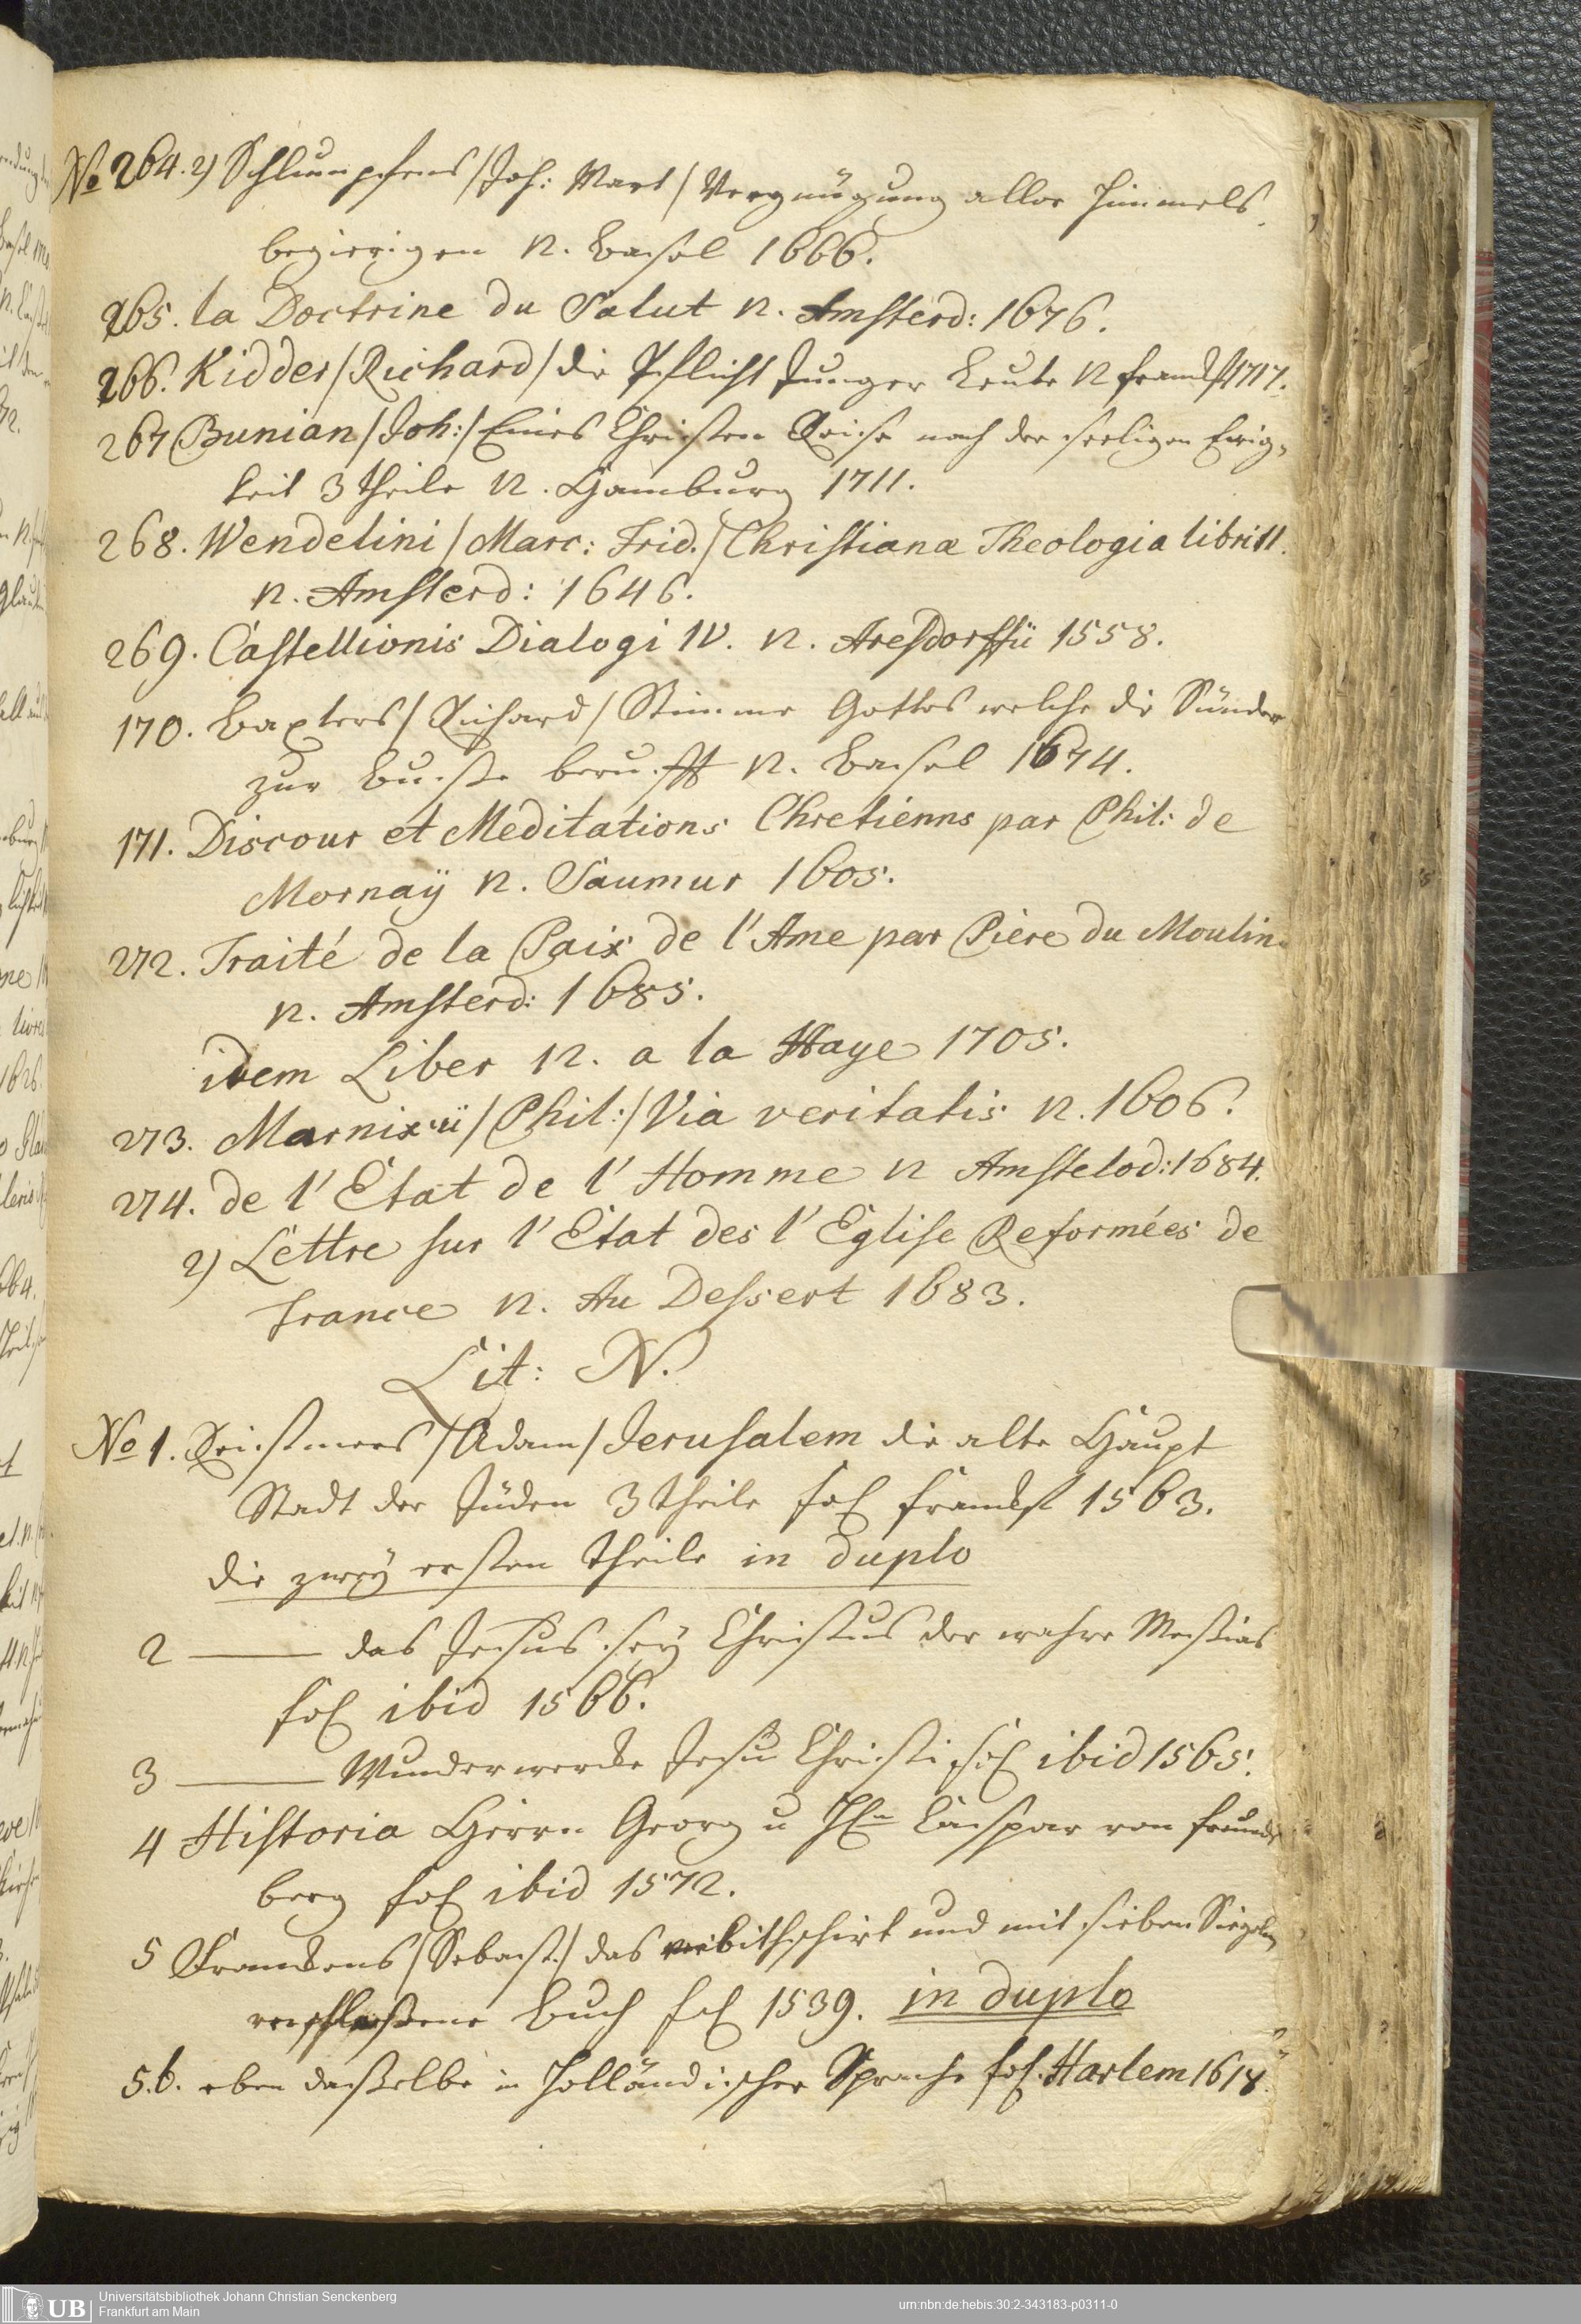 No 264. 2) Schlumpfens /Joh: Mart/ Vergnügung aller Himmels
begierigen 12. Basel 1666.
265. la Doctrine du Salut 12. Amsterd: 1676.
266. Kidder /Richard/ die Pflicht Junger Leute 12 franckf 1717.
267 Bunian /Joh:/ Eines Christen Reise nach der seeligen Ewig-
keit 3 theile 12. Hamburg 1711.
268. Wendelini /Marc: Frid./ Christianæ Theologia libri II.
12. Amsterd: 1646.
269. Castellionis Dialogi IV. 12. Aresdorffii 1558.
170. Baxters /Richard/ Stimme Gottes welche die Sünder
zur Busse berufft 12. Basel 1674.
171. Discour et Meditations Chretienns par Phil: de
Mornaÿ 12. Saumur 1605.
272. Traité de la Paix de l'Ame par Piere du Moulin
12. Amsterd: 1685.
idem Liber 12. a la Haye 1705.
273. Marnixii /Phil:/ Via veritatis 12. 1606.
274. de l'Etat de l'Homme 12 Amstelod: 1684.
2) Lettre sur l'Etat des l'Eglise Reformées de
France 12. Au Dessert 1683.
Lit: N.
No 1. Reissners /Adam/ Jerusalem die alte Haupt
Stadt der Juden 3 theile fol franckf 1563.
die zweÿ ersten theile in duplo
2 ——— das Jesus seÿ Christus der wahre Messias
fol ibid 1566.
3 ——— Wunderwercke Jesu Christi fol ibid 1565.
4 Historia Herrn Georg u Hn Caspar von frunds
berg fol ibid 1572.
5 Franckens /Sebast./ das verbithschirt und mit sieben Siegeln
verschlossene Buch fol 1539. in duplo
5.b. eben dasselbe in Holländischer Sprache fol. Harlem 1618.
UB Universitätsbibliothek Johann Christian Senckenberg
Frankfurt am Main
urn:nbn:de:hebis:30:2-343183-p0311-0